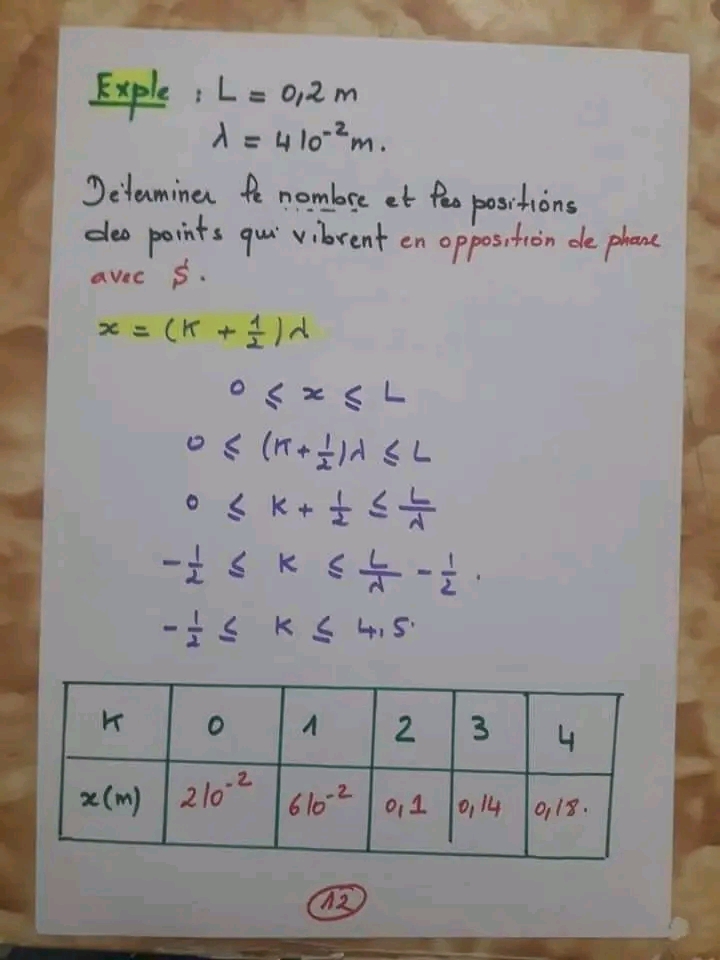 Exple : L = 0,2 m
λ = 4 10⁻² m.
Déterminer le nombre et les positions
des points qui vibrent en opposition de phase
avec S.
x = (K + 1/2) λ
0 ⩽ x ⩽ L
0 ⩽ (K + 1/2) λ ⩽ L
0 ⩽ K + 1/2 ⩽ L/λ
-1/2 ⩽ K ⩽ L/λ - 1/2.
-1/2 ⩽ K ⩽ 4,5.
K 0 1 2 3 4
x(m) 2 10⁻² 6 10⁻² 0,1 0,14 0,18.
12